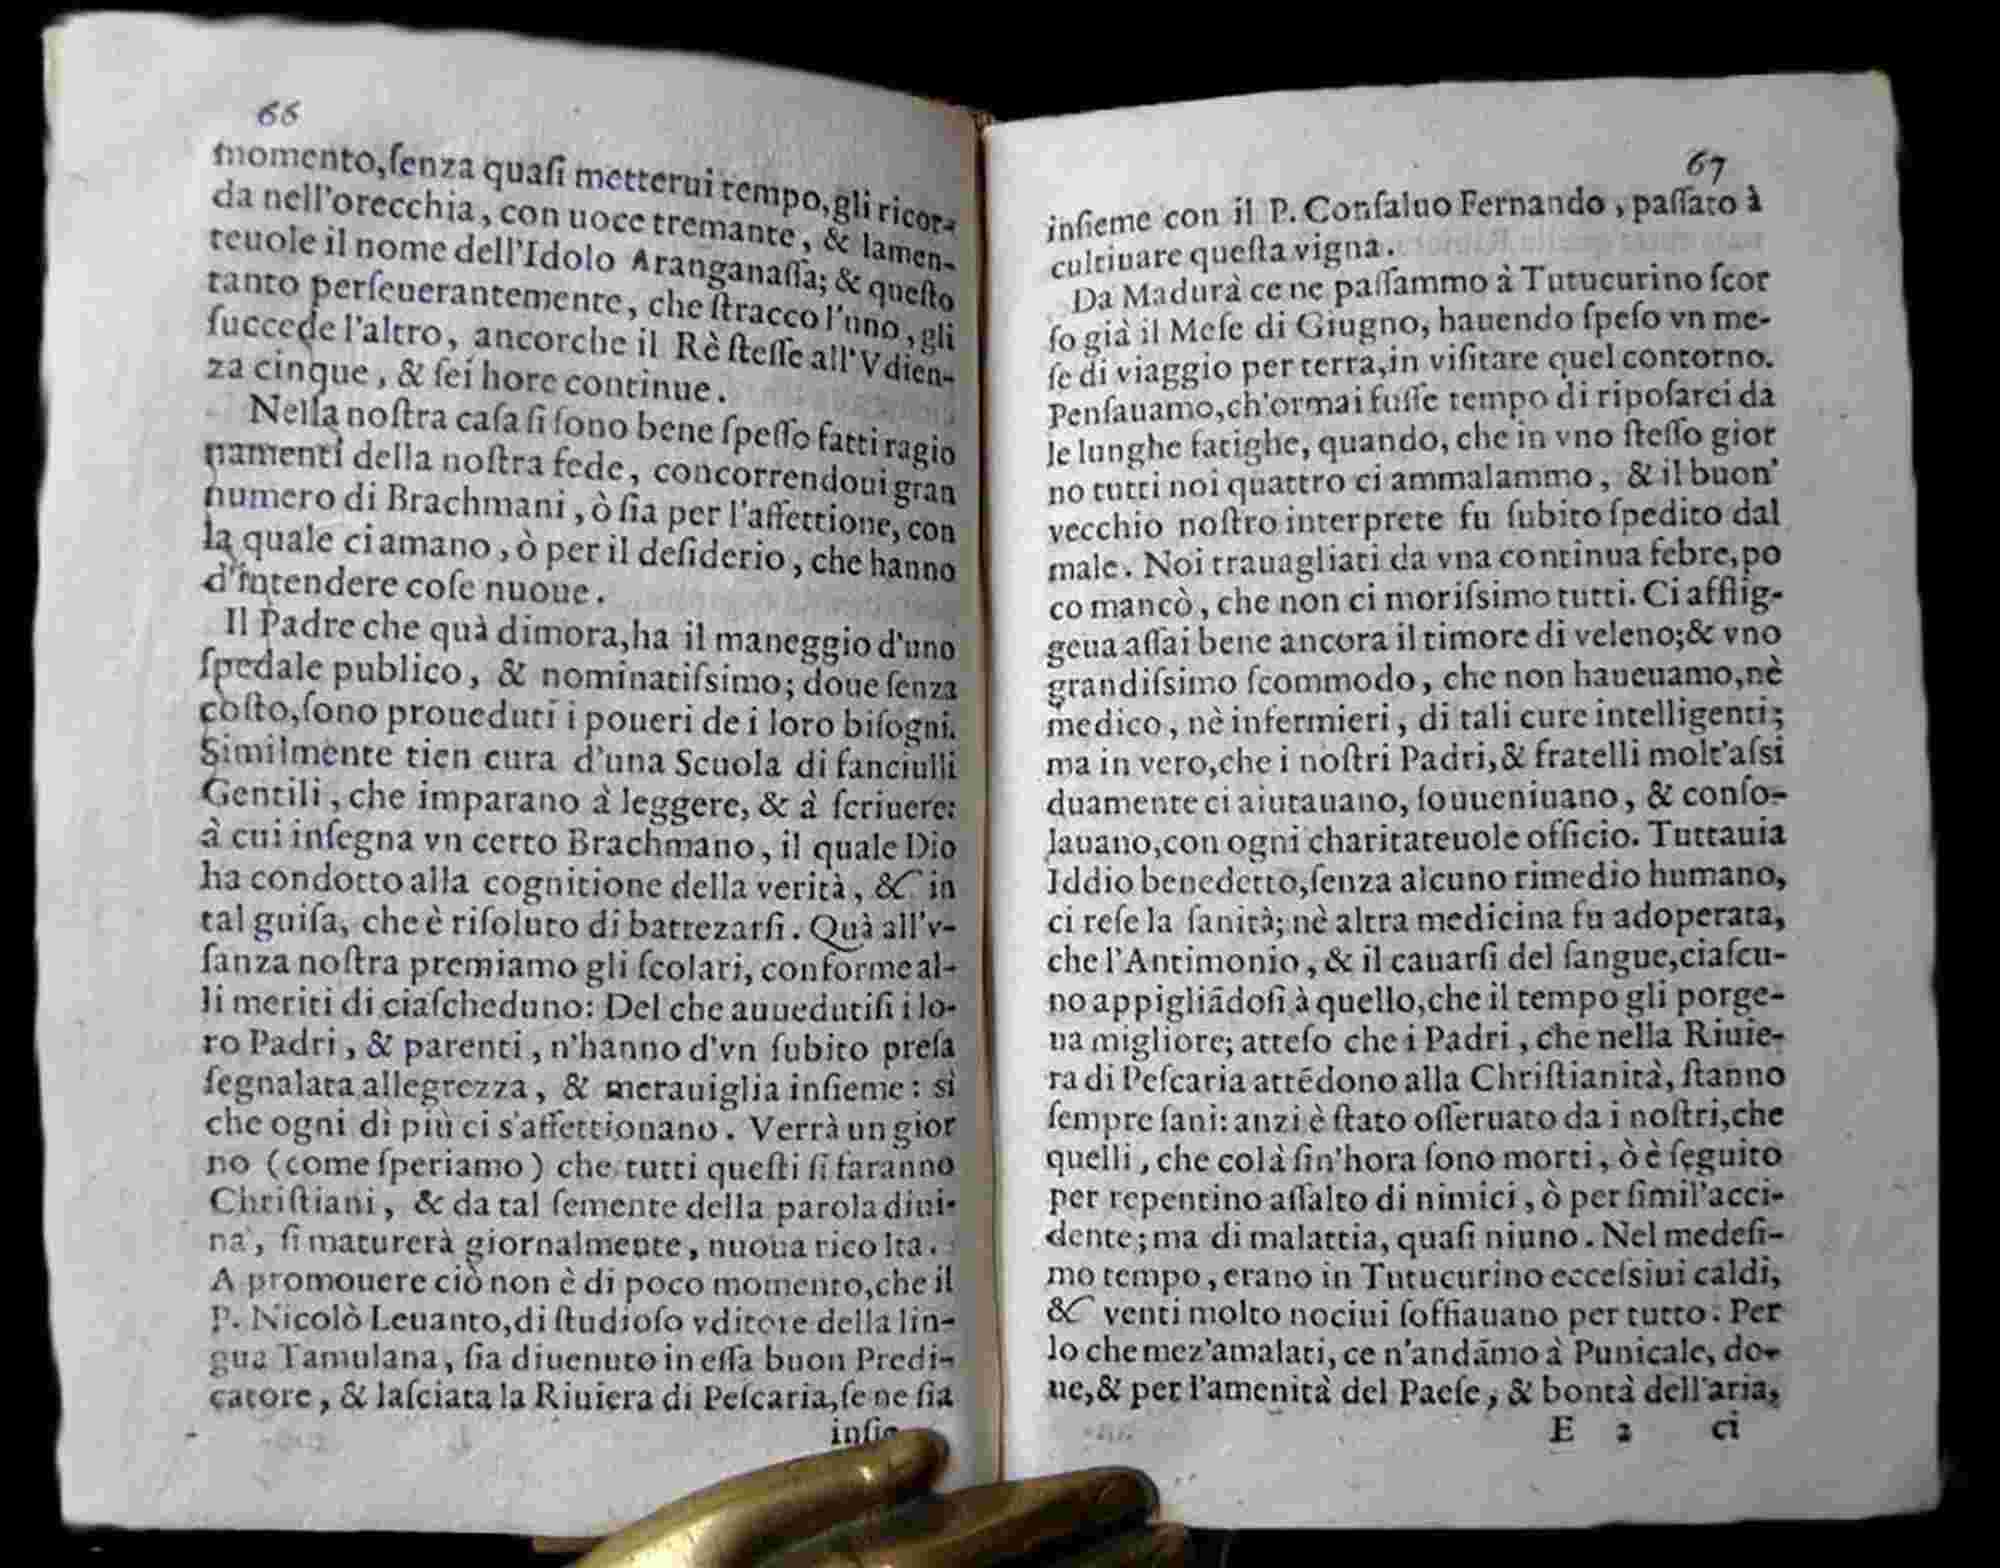 66
momento,ſenza quaſi metterui tempo,gli ricor-
da nell'orecchia, con uoce tremante, & lamen-
teuole il nome dell'Idolo Aranganaſſa; & queſto
tanto perſeuerantemente, che ſtracco l'uno, gli
ſuccede l'altro, ancorche il Rè ſteſſe all'Vdien-
za cinque, & ſei hore continue.
Nella noſtra caſa ſi ſono bene ſpeſſo fatti ragio
namenti della noſtra fede, concorrendoui gran
numero di Brachmani, ò ſia per l'affettione, con
la quale ci amano, ò per il deſiderio, che hanno
d'intendere coſe nuoue.
Il Padre che quà dimora,ha il maneggio d'uno
ſpedale publico, & nominatiſsimo; doue ſenza
coſto,ſono proueduti i poueri de i loro biſogni.
Similmente tien cura d'una Scuola di fanciulli
Gentili, che imparano à leggere, & à ſcriuere:
à cui inſegna vn certo Brachmano, il quale Dio
ha condotto alla cognitione della verità, & in
tal guiſa, che è riſoluto di battezarſi. Quà all'v-
ſanza noſtra premiamo gli ſcolari, conforme al-
li meriti di ciaſcheduno: Del che auuedutiſi i lo-
ro Padri, & parenti, n'hanno d'vn ſubito preſa
ſegnalata allegrezza, & merauiglia inſieme: sì
che ogni dì più ci s'affettionano. Verrà un gior
no (come ſperiamo) che tutti queſti ſi faranno
Chriſtiani, & da tal ſemente della parola diui-
na, ſi maturerà giornalmente, nuoua ricolta.
A promouere ciò non è di poco momento,che il
P. Nicolò Leuanto,di ſtudioſo vditore della lin-
gua Tamulana, ſia diuenuto in eſſa buon Predi-
catore, & laſciata la Riuiera di Peſcaria,ſe ne ſia
inſie
67
inſieme con il P. Conſaluo Fernando, paſſato à
cultiuare queſta vigna.
Da Madurà ce ne paſſammo à Tutucurino ſcor
ſo già il Meſe di Giugno, hauendo ſpeſo vn me-
ſe di viaggio per terra,in viſitare quel contorno.
Penſauamo,ch'ormai fuſſe tempo di ripoſarci da
le lunghe fatighe, quando, che in vno ſteſſo gior
no tutti noi quattro ci ammalammo, & il buon'
vecchio noſtro interprete fu ſubito ſpedito dal
male. Noi trauagliati da vna continua febre,po
co mancò, che non ci moriſsimo tutti. Ci afflig-
geua aſſai bene ancora il timore di veleno;& vno
grandiſsimo ſcommodo, che non haueuamo,nè
medico, nè infermieri, di tali cure intelligenti;
ma in vero,che i noſtri Padri,& fratelli molt'aſsi
duamente ci aiutauano, ſouueniuano, & conſo-
lauano,con ogni charitateuole officio. Tuttauia
Iddio benedetto,ſenza alcuno rimedio humano,
ci reſe la ſanità; nè altra medicina fu adoperata,
che l'Antimonio, & il cauarſi del ſangue,ciaſcu-
no appigliãdoſi à quello,che il tempo gli porge-
ua migliore; atteſo che i Padri, che nella Riuie-
ra di Peſcaria attẽdono alla Chriſtianità, ſtanno
ſempre ſani: anzi è ſtato oſſeruato da i noſtri,che
quelli, che colà ſin'hora ſono morti, ò è ſeguito
per repentino aſſalto di nimici, ò per ſimil'acci-
dente; ma di malattia, quaſi niuno. Nel medeſi-
mo tempo, erano in Tutucurino ecceſsiui caldi,
& venti molto nociui ſoffiauano per tutto. Per
lo che mez'amalati, ce n'andãmo à Punicale, do-
ue,& per l'amenità del Paeſe, & bontà dell'aria,
E 2 ci